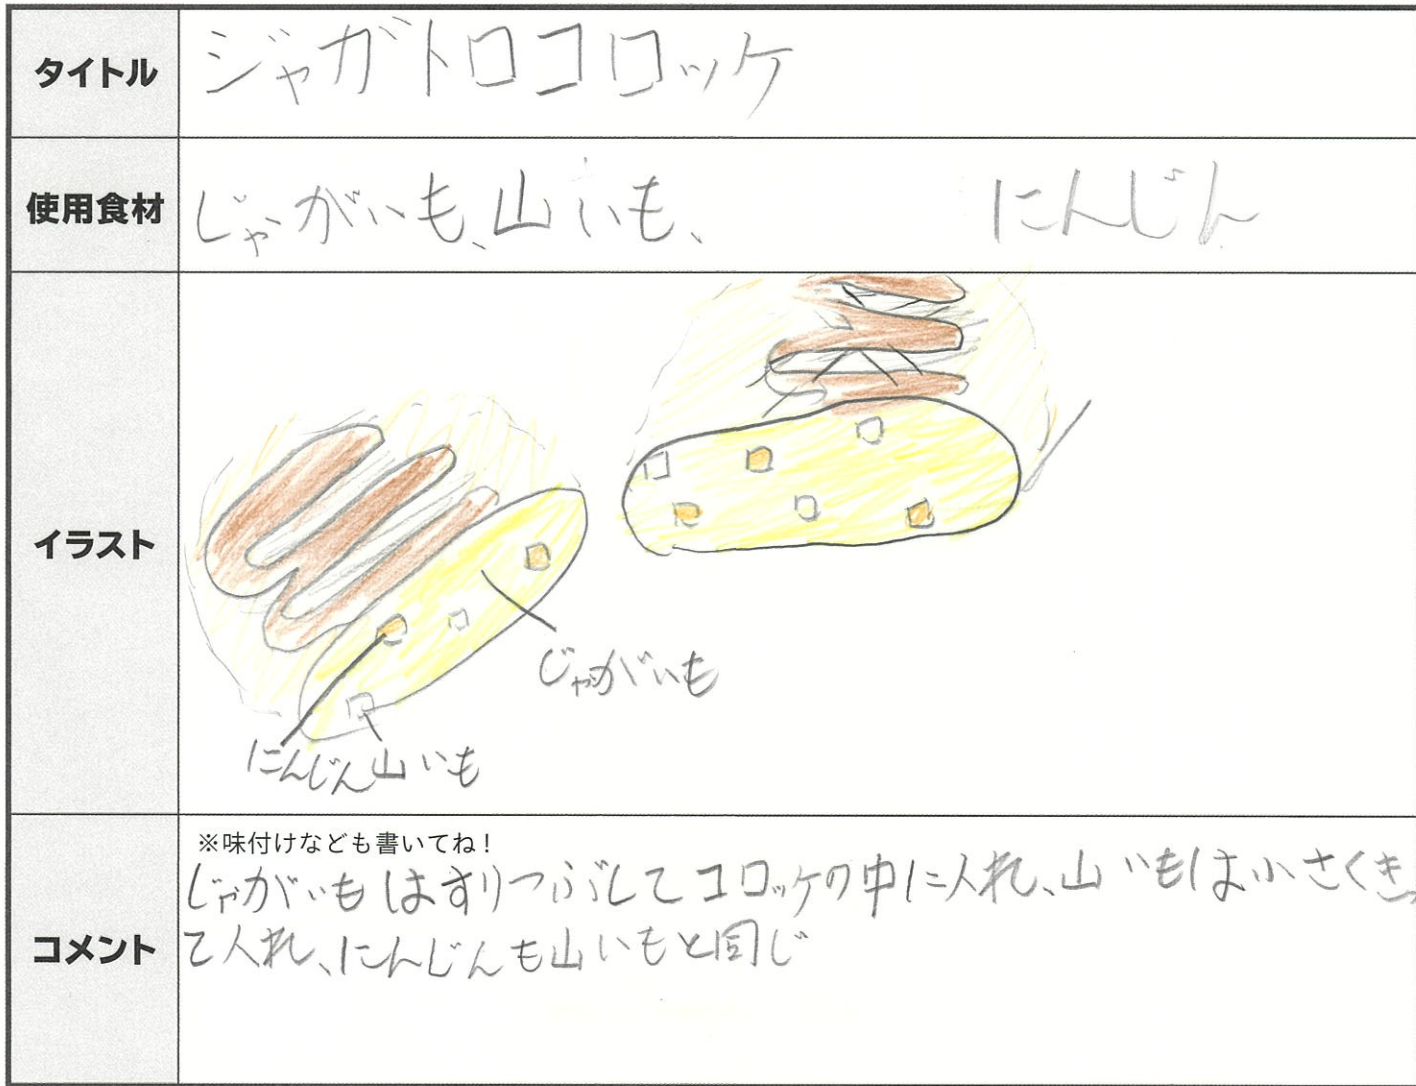 タイトル
ジャガトロコロッケ
使用食材
じゃがいも、山いも、 にんじん
イラスト
じゃがいも
にんじん 山いも
コメント
※味付けなども書いてね！
じゃがいもはすりつぶしてコロッケの中に入れ、山いもは小さくきっ
て入れ、にんじんも山いもと同じ